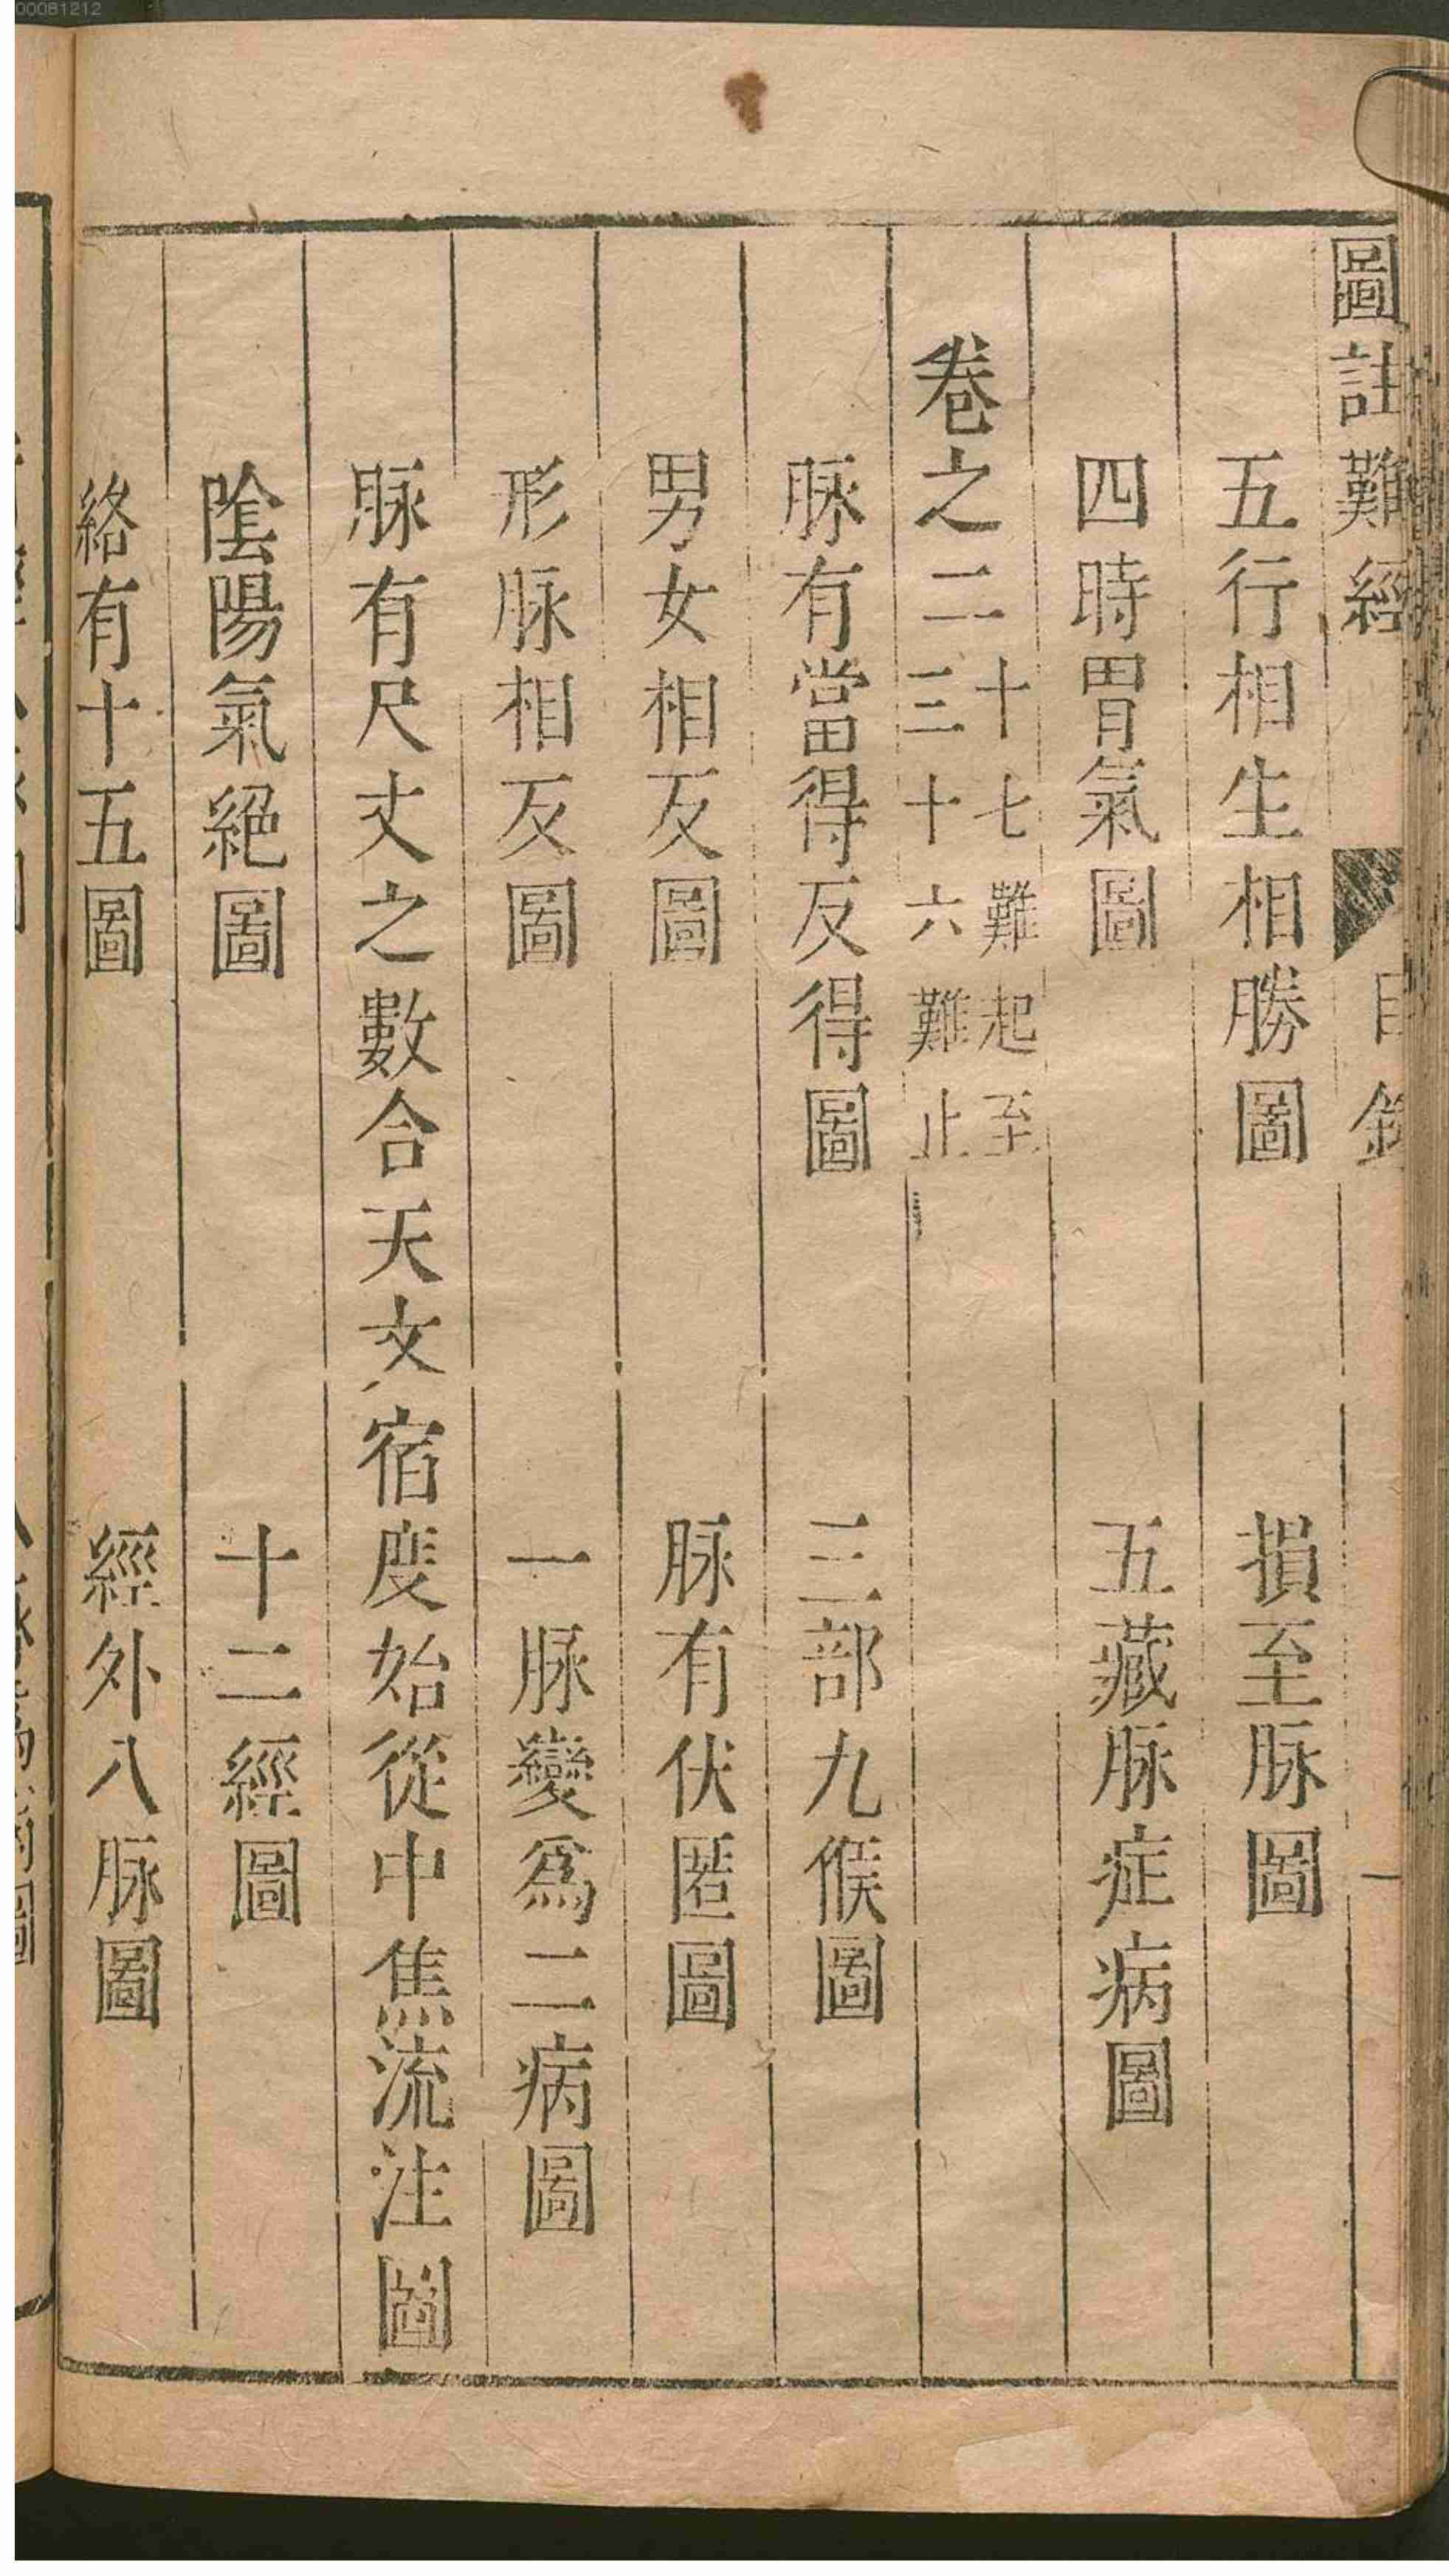 圖註難經 目錄 一
五行相生相勝圖 損至脉圖
四時胃氣圖 五藏脉症病圖
卷之二 十七難起至三十六難止
脉有當得反得圖 三部九候圖
男女相反圖 脉有伏匿圖
形脉相反圖 一脉變爲二病圖
脉有尺丈之數合天文宿度始從中焦流注圖
陰陽氣絕圖 十二經圖
絡有十五圖 經外八脉圖
00081212